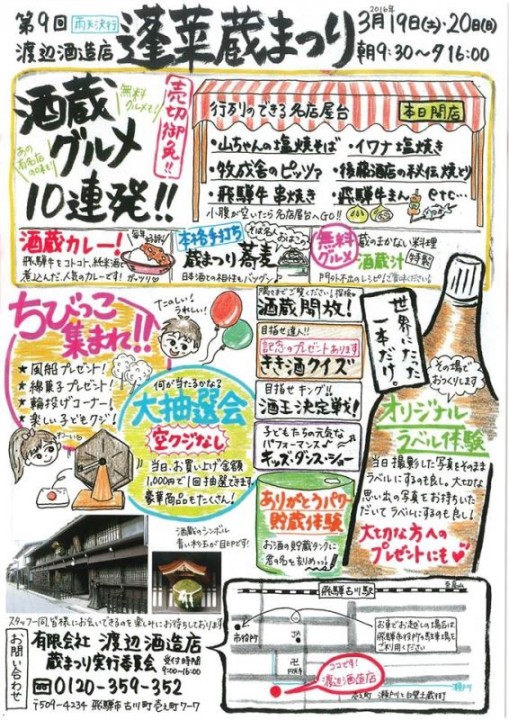 第9回
雨天決行
渡辺酒造店
蓬莱蔵まつり
2016年
3月19日(土)・20日(日)
朝9:30〜夕16:00
酒蔵
グルメ
10連発!!
無料
グルメも!
売切御免!!
行列のできる名店屋台
本日開店
・山ちゃんの塩焼そば
・イワナ塩焼き
・牧成舎のピッツァ
・後藤酒店の秘伝焼とり
・飛騨牛串焼き
・飛騨牛まん etc…
小腹が空いたら名店屋台へGO!!
酒蔵カレー!
飛騨牛をコトコト、純米酒で
煮込んだ、人気のカレーです!
本格手打ち
蔵まつり蕎麦
日本酒との相性もバッグン♪
無料
グルメ
蔵のまかない料理
酒蔵汁
特製
門外不出のレシピ!
ちびっこ
集まれ!!
★風船プレゼント!
★綿菓子プレゼント!
★輪投げコーナー!
★楽しい子どもクジ!
たのしい!
うれしい!
わーい
何が当たるかな?
大抽選会
空クジなし
当日、お買い上げ金額
1,000円で1回抽選できます
豪華商品もたくさん!
酒蔵開放!
目指せ達人!!
記念のプレゼントあります
きき酒クイズ
目指せキング!!
酒王決定戦!
子どもたちの元気な
パフォーマンス♪
キッズ・ダンス・ショー
ありがとうパワー
貯蔵体験
お酒の貯蔵タンクに
世界にたった
一本だけ。
その場で
おつくりします
オリジナル
ラベル体験
当日撮影した写真をそのまま
ラベルにするのも良し。大切な
思い出の写真をお持ちいた
だいてラベルにするのも良し!
大切な方への
プレゼントにも
酒蔵のシンボル
青い杉玉が目印です!
スタッフ一同、皆様にお会いできるのを楽しみにお待ちしております
お問い合わせ
有限会社 渡辺酒造店
蔵まつり実行委員会
受付時間
9:00〜16:00
0120-359-352
〒509-4234 飛騨市古川町壱之町7-7
飛騨古川駅
市役所
JA
卍
円光寺
ココです!
渡辺酒造店
お車でお越しの場合は
飛騨市役所の駐車場を
ご利用ください
瀬戸川
壱之町
瀬戸川と白壁土蔵街